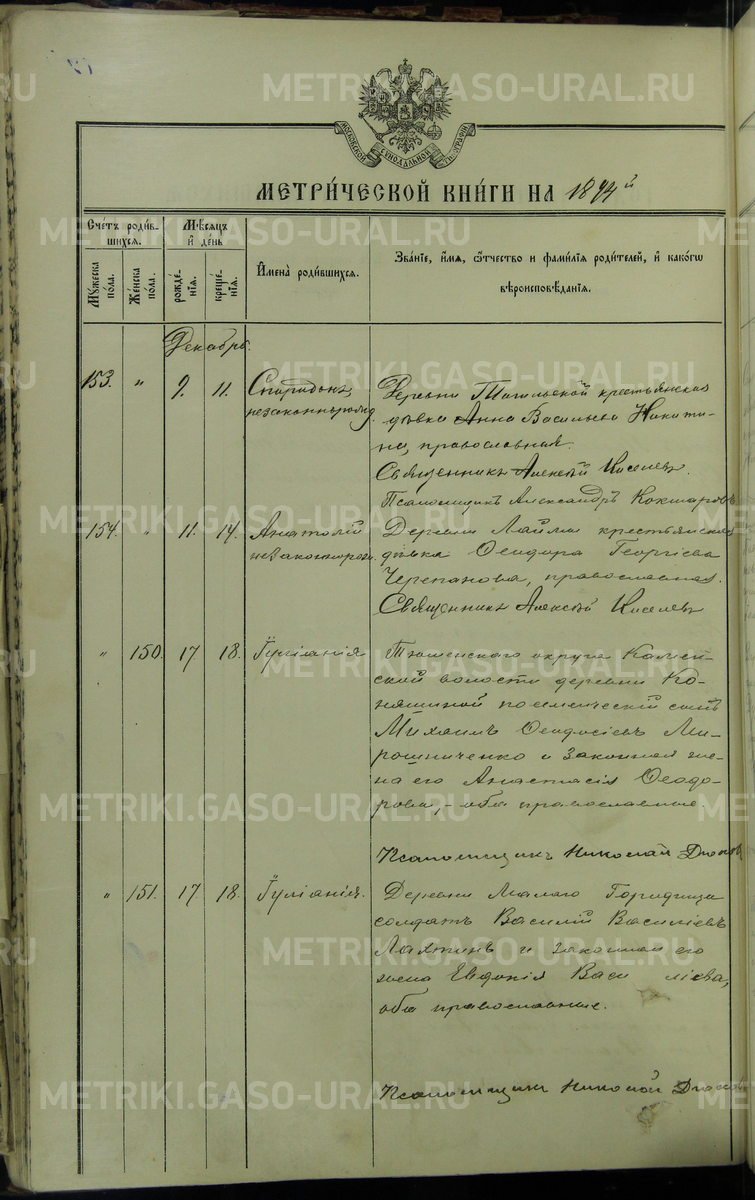 МОСКОВСКОЙ СУНОДАЛЬНОЙ ТИПОГРАФІИ
МЕТРИ́ЧЕСКОЙ КНИ́ГИ НА 1894й
Сче́тъ роди́в-
шихся.
Мѣсяцъ
и҆ де́нь
Мꙋ́жеска
по́ла.
Же́нска
по́ла.
рожде́-
нїѧ.
креще́-
нїѧ.
И҆мена̀ роди́вшихся.
Зва́нїе, и҆́мя, ѻ҆́тчество и фами́лїя роди́телей, и҆ како́гѡ
вѣроисповѣ́данїѧ.
Декабрь.
153. " 9. 11. Спиридонъ
незаконнорожд.
Деревни Тагильской крестьянская
дѣвка Анна Васильева Никити-
на, православная.
Священникъ Алексѣй Киселевъ
Псаломщикъ Александръ Кокшаровъ
154. " 11. 14. Анатолій
незаконнорожд.
Деревни Лаймы крестьянская
дѣвка Ѳеодора Георгіева
Черепанова, православная.
Священникъ Алексѣй Киселевъ
" 150. 17 18. Іуліанія
Тюменскаго округа Камен-
ской волости деревни Ко-
няшиной поселенческій сынъ
Михаилъ Ѳеодосіевъ Ми-
рошниченко и законная же-
на его Анастасія Ѳеодо-
рова, - оба православные.
Псаломщикъ Николай
" 151. 17 18. Іуліанія.
Деревни Малаго
солдатъ Василій Василіевъ
Лахтинъ и законная его
жена Евдокія Василіева,
оба православные.
Псаломщикъ Николай
METRIKI.GASO-URAL.RU